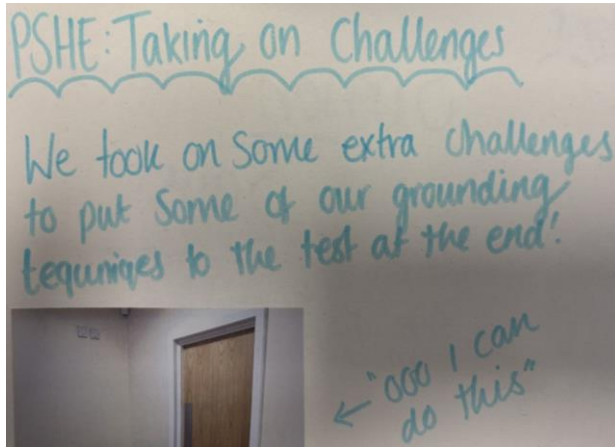 PSHE: Taking on Challenges
We took on Some extra challenges
to put Some of our grounding
tequniqes to the test at the end!
"ooo I can
do this"